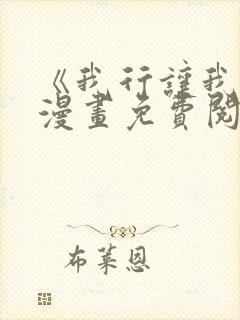 《我行讓我
漫畫免費閱
布萊恩